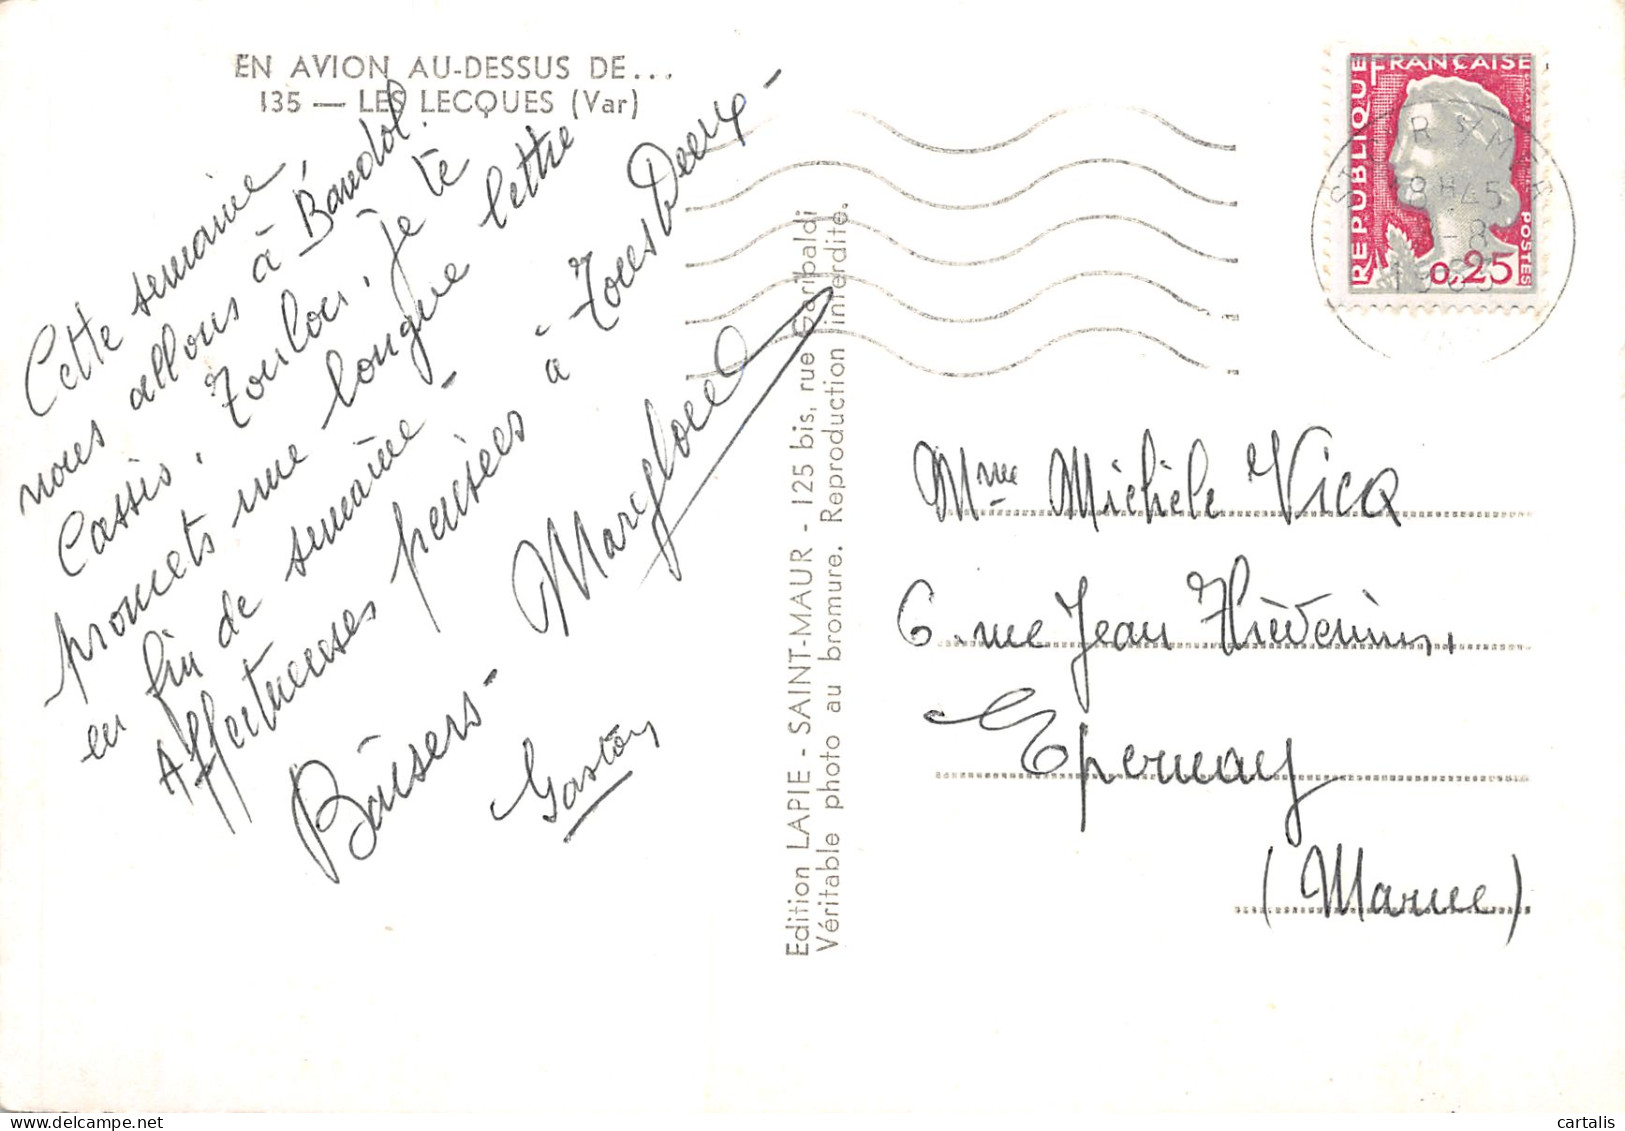 EN AVION AU-DESSUS DE...
135 — LES LECQUES (Var)
Cette semaine
nous allons à Bandol.
Cassis. Toulon. Je te
promets une longue lettre
en fin de semaine -
Affectueuses pensées à Tous Deux -
Baisers -
Gaston
Edition LAPIE - SAINT-MAUR - 125 bis, rue Garibaldi
Véritable photo au bromure. Reproduction interdite.
REPUBLIQUE FRANÇAISE
POSTES
0,25
18H45
-8
Mme Michèle Vicq
6. rue Jean
Epernay
(Marne)
cartalis